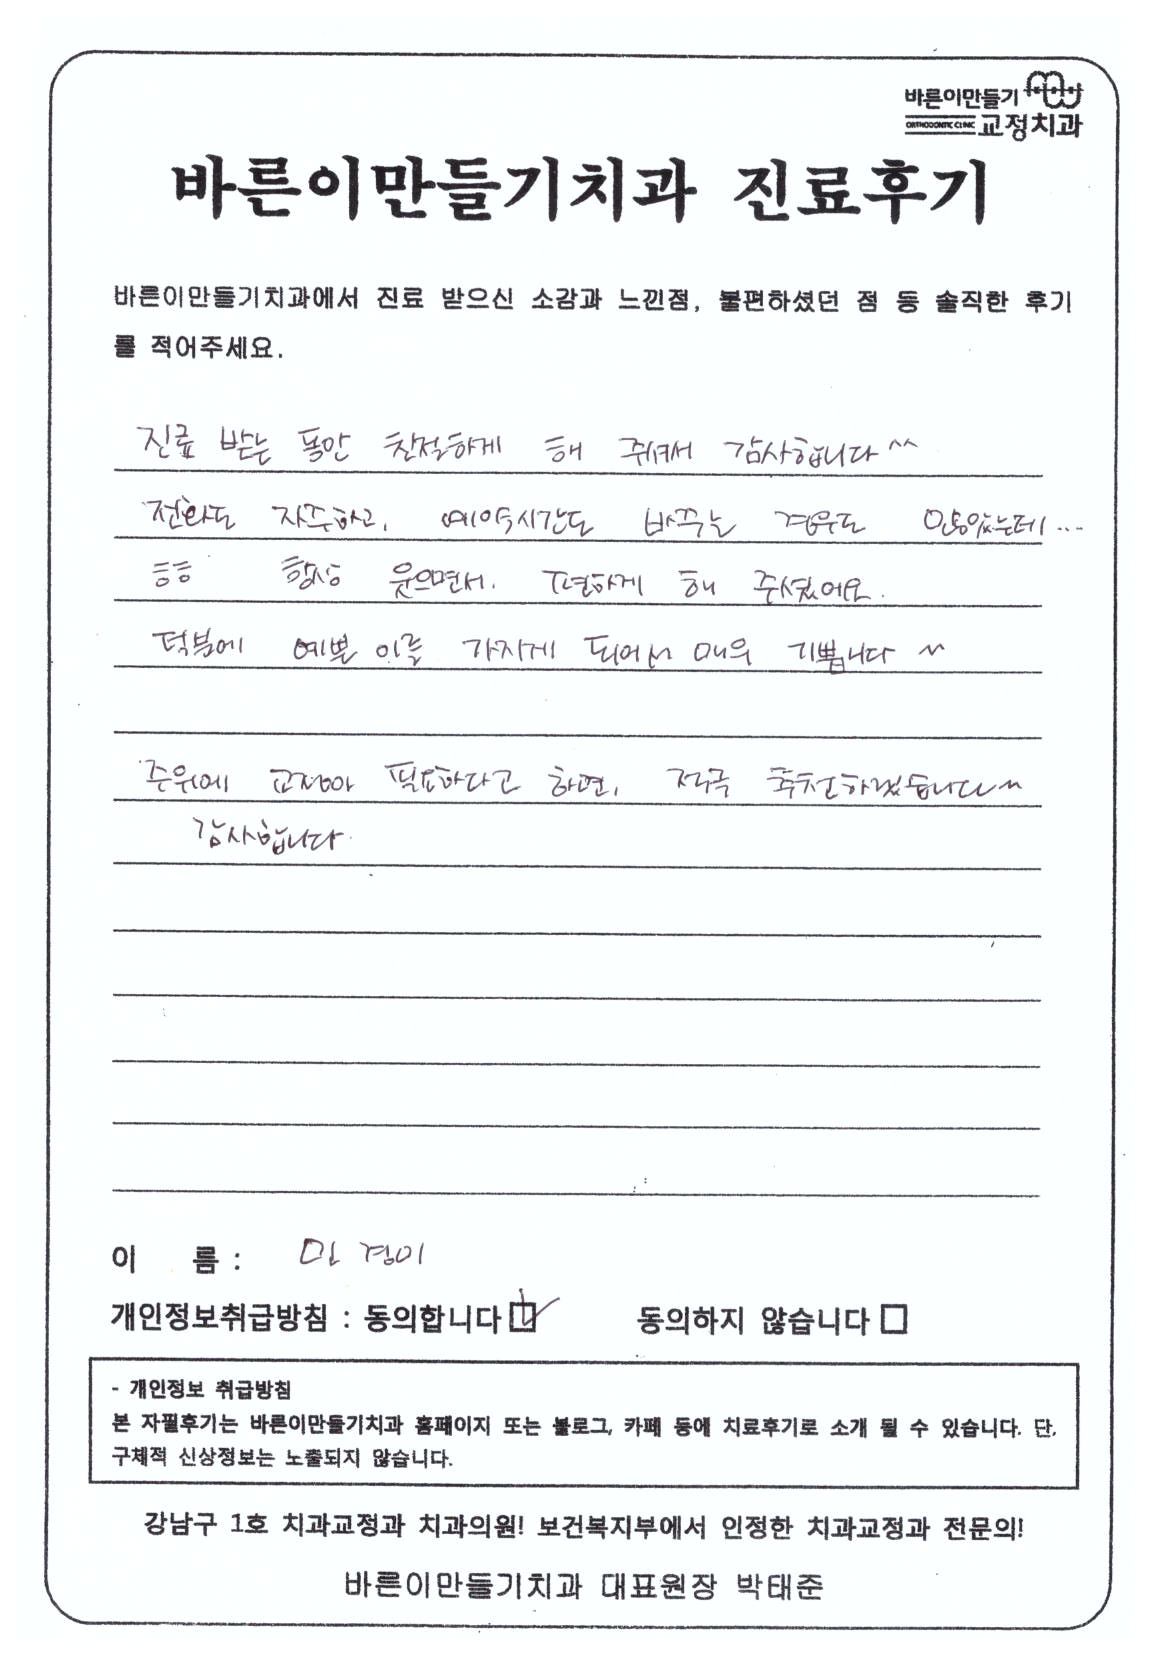 바른이만들기
ORTHODONTIC CLINIC 교정치과
바른이만들기치과 진료후기
바른이만들기치과에서 진료 받으신 소감과 느낀점, 불편하셨던 점 등 솔직한 후기
를 적어주세요.
진료 받는 동안 친절하게 해 주셔서 감사합니다^^
전화도 자주하고, 예약시간도 바꾸는 경우도 많았는데...
ㅎㅎ 항상 웃으면서. 편하게 해 주셨어요.
덕분에 예쁜 이를 가지게 되어서 매우 기쁩니다 ^^
주위에 교정이 필요하다고 하면, 적극 추천하겠습니다^^
감사합니다.
이 름 : 민경미
개인정보취급방침 : 동의합니다 동의하지 않습니다
- 개인정보 취급방침
본 자필후기는 바른이만들기치과 홈페이지 또는 블로그, 카페 등에 치료후기로 소개 될 수 있습니다. 단,
구체적 신상정보는 노출되지 않습니다.
강남구 1호 치과교정과 치과의원! 보건복지부에서 인정한 치과교정과 전문의!
바른이만들기치과 대표원장 박태준